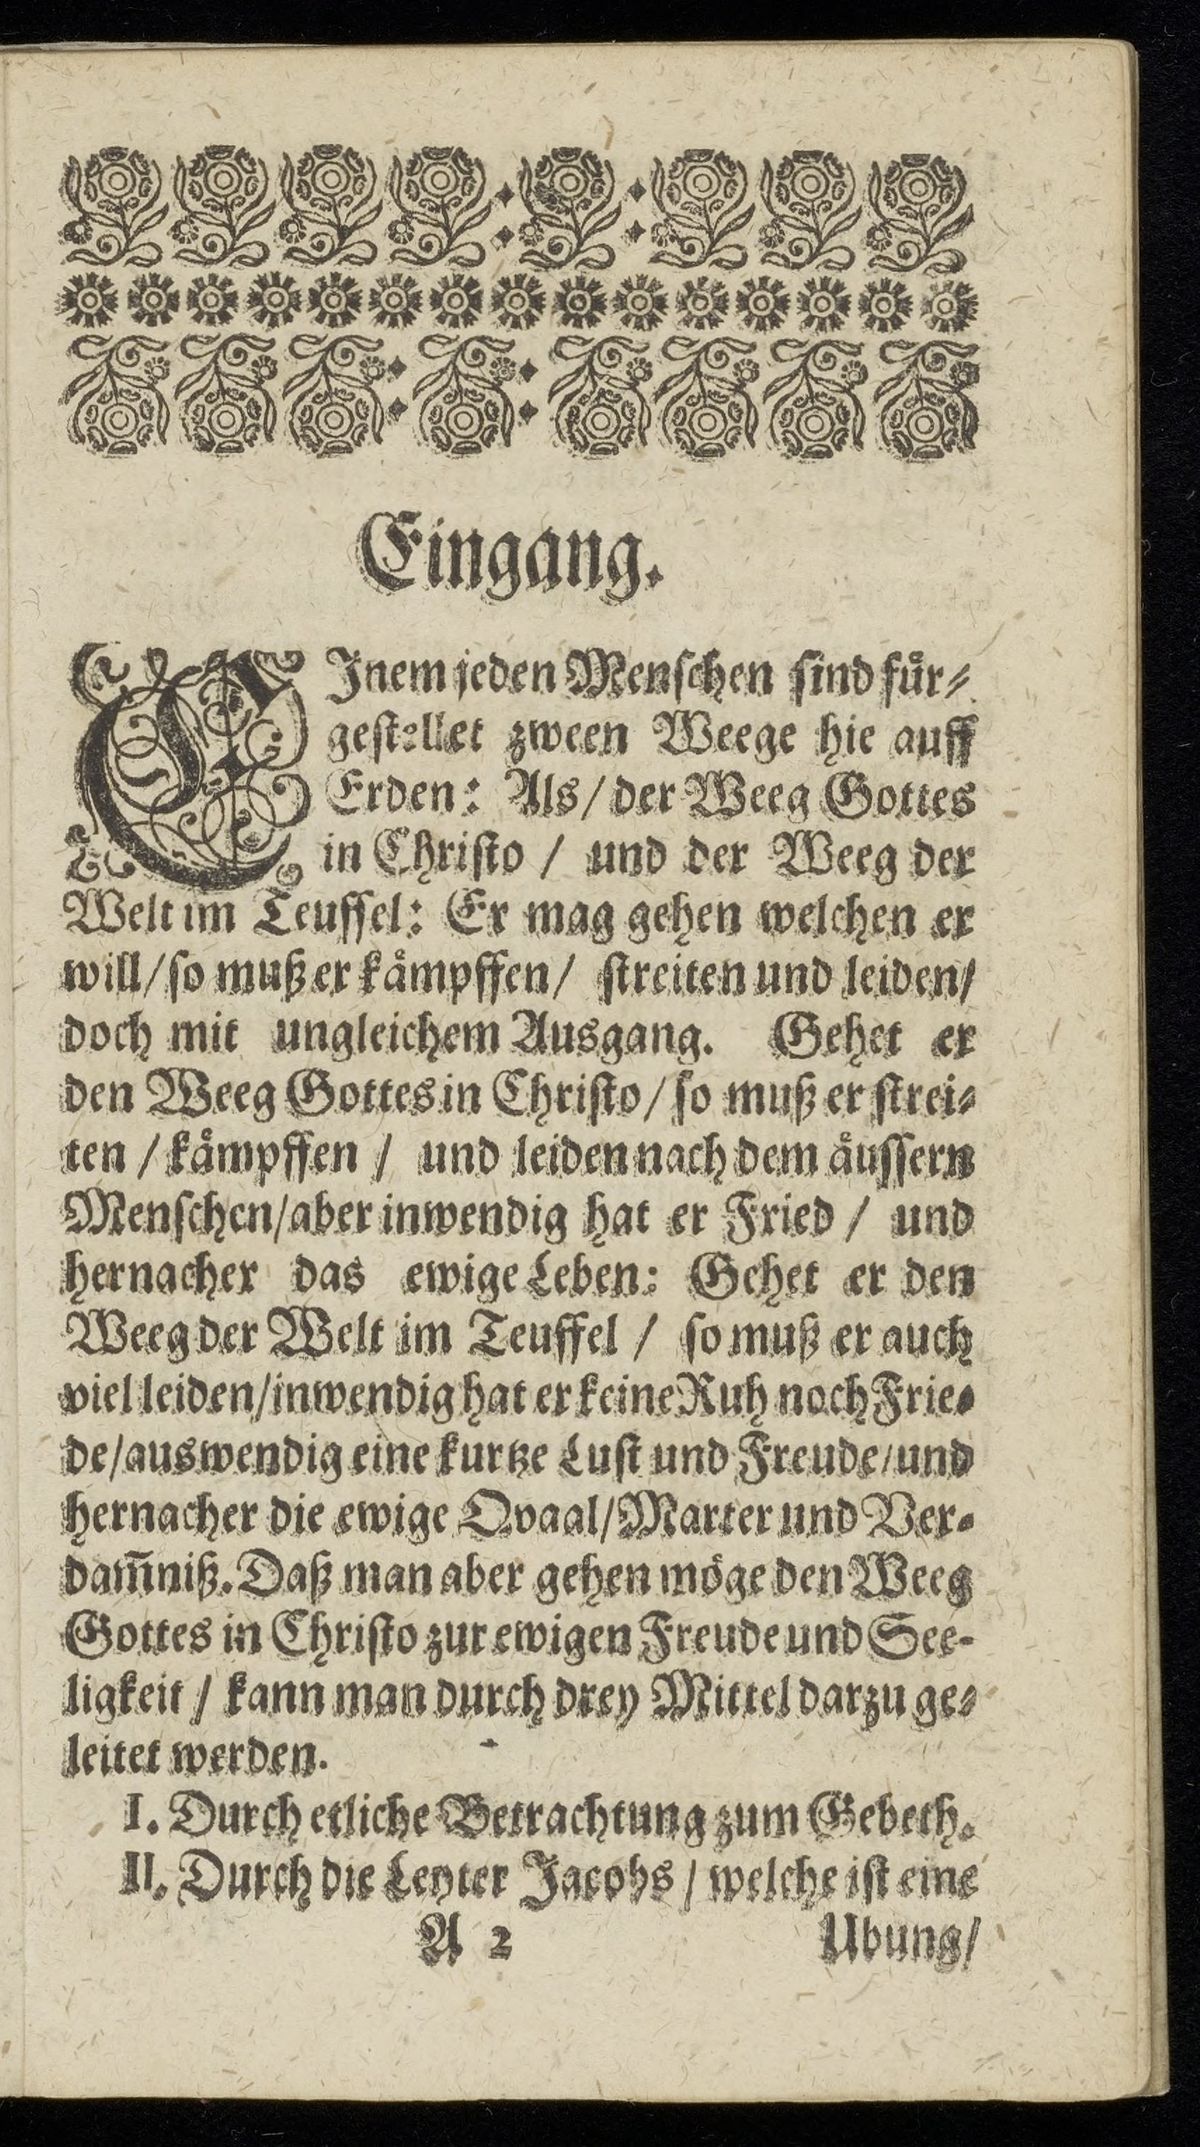 Eingang.
EJnem jeden Menschen sind für-
gestellet zween Weege hie auff
Erden: Als/ der Weeg Gottes
in Christo / und der Weeg der
Welt im Teuffel: Er mag gehen welchen er
will/ so muß er kämpffen/ streiten und leiden/
doch mit ungleichem Ausgang. Gehet er
den Weeg Gottes in Christo/ so muß er strei-
ten / kämpffen / und leiden nach dem äussern
Menschen/aber inwendig hat er Fried / und
hernacher das ewige Leben: Gehet er den
Weeg der Welt im Teuffel / so muß er auch
viel leiden/inwendig hat er keine Ruh noch Frie-
de/auswendig eine kurtze Lust und Freude/und
hernacher die ewige Qvaal/Marter und Ver-
dam̅niß. Daß man aber gehen möge den Weeg
Gottes in Christo zur ewigen Freude und See-
ligkeit / kann man durch drey Mittel darzu ge-
leitet werden.
I. Durch etliche Betrachtung zum Gebeth.
II. Durch die Leyter Jacobs / welche ist eine
A 2 Ubung/